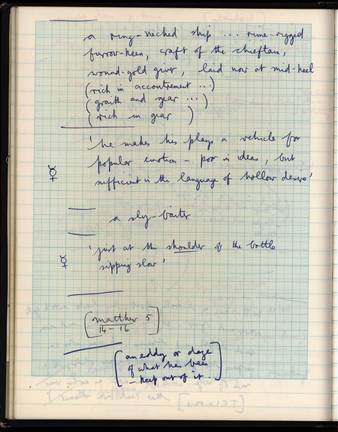 a ring-necked ship ... rime-rigged
furrow-keen, craft of the chieftain,
wound-gold giver, laid now at mid-keel
(rich in accoutrement ...)
(graith and gear ...)
(rich in gear)
'he makes his plays a vehicle for
popular emotion - poor in ideas, but
sufficient in the language of hollow desires'
a sky-baiter
'just at the shoulder of the bottle
sipping slow'
[matthew 5
14-16]
[an eddy or daze
of what has been
- keep out of it..]